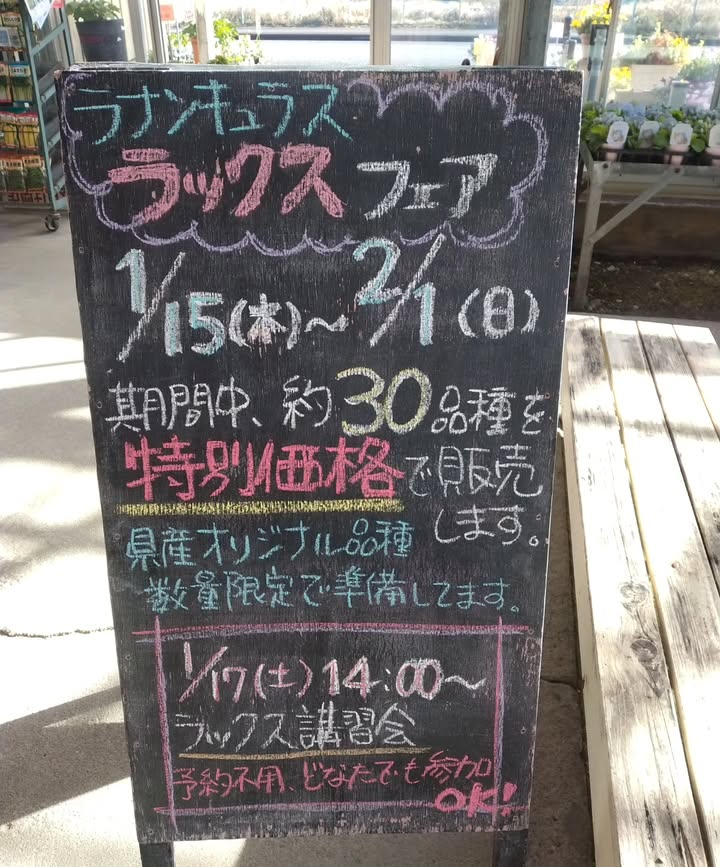 ラナンキュラス
ラックス フェア
1/15(木)～2/1(日)
期間中、約30品種を
特別価格で販売
します。
県産オリジナル品種
数量限定で準備してます。
1/17(土) 14:00～
ラックス講習会
予約不用、どなたでも参加
OK!